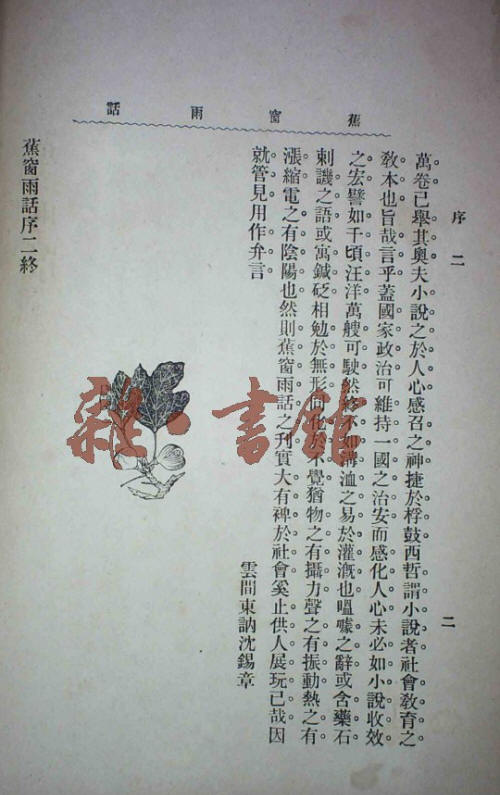 蕉窗雨話
序二
二
萬卷已舉其奧夫小說之於人心感召之神捷於桴鼓西哲謂小說者社會敎育之
敎本也旨哉言乎蓋國家政治可維持一國之治安而感化人心未必如小說收效
之宏譬如千頃汪洋萬艘可駛然終不如溝洫之易於灌漑也嗢噱之辭或含藥石
刺譏之語或寓鍼砭相勉於無形向化於不覺猶物之有攝力聲之有振動熱之有
漲縮電之有陰陽也然則蕉窗雨話之刊實大有裨於社會奚止供人展玩已哉因
就管見用作弁言
雲間東訥沈錫章
蕉窗雨話序二終
雜·書館